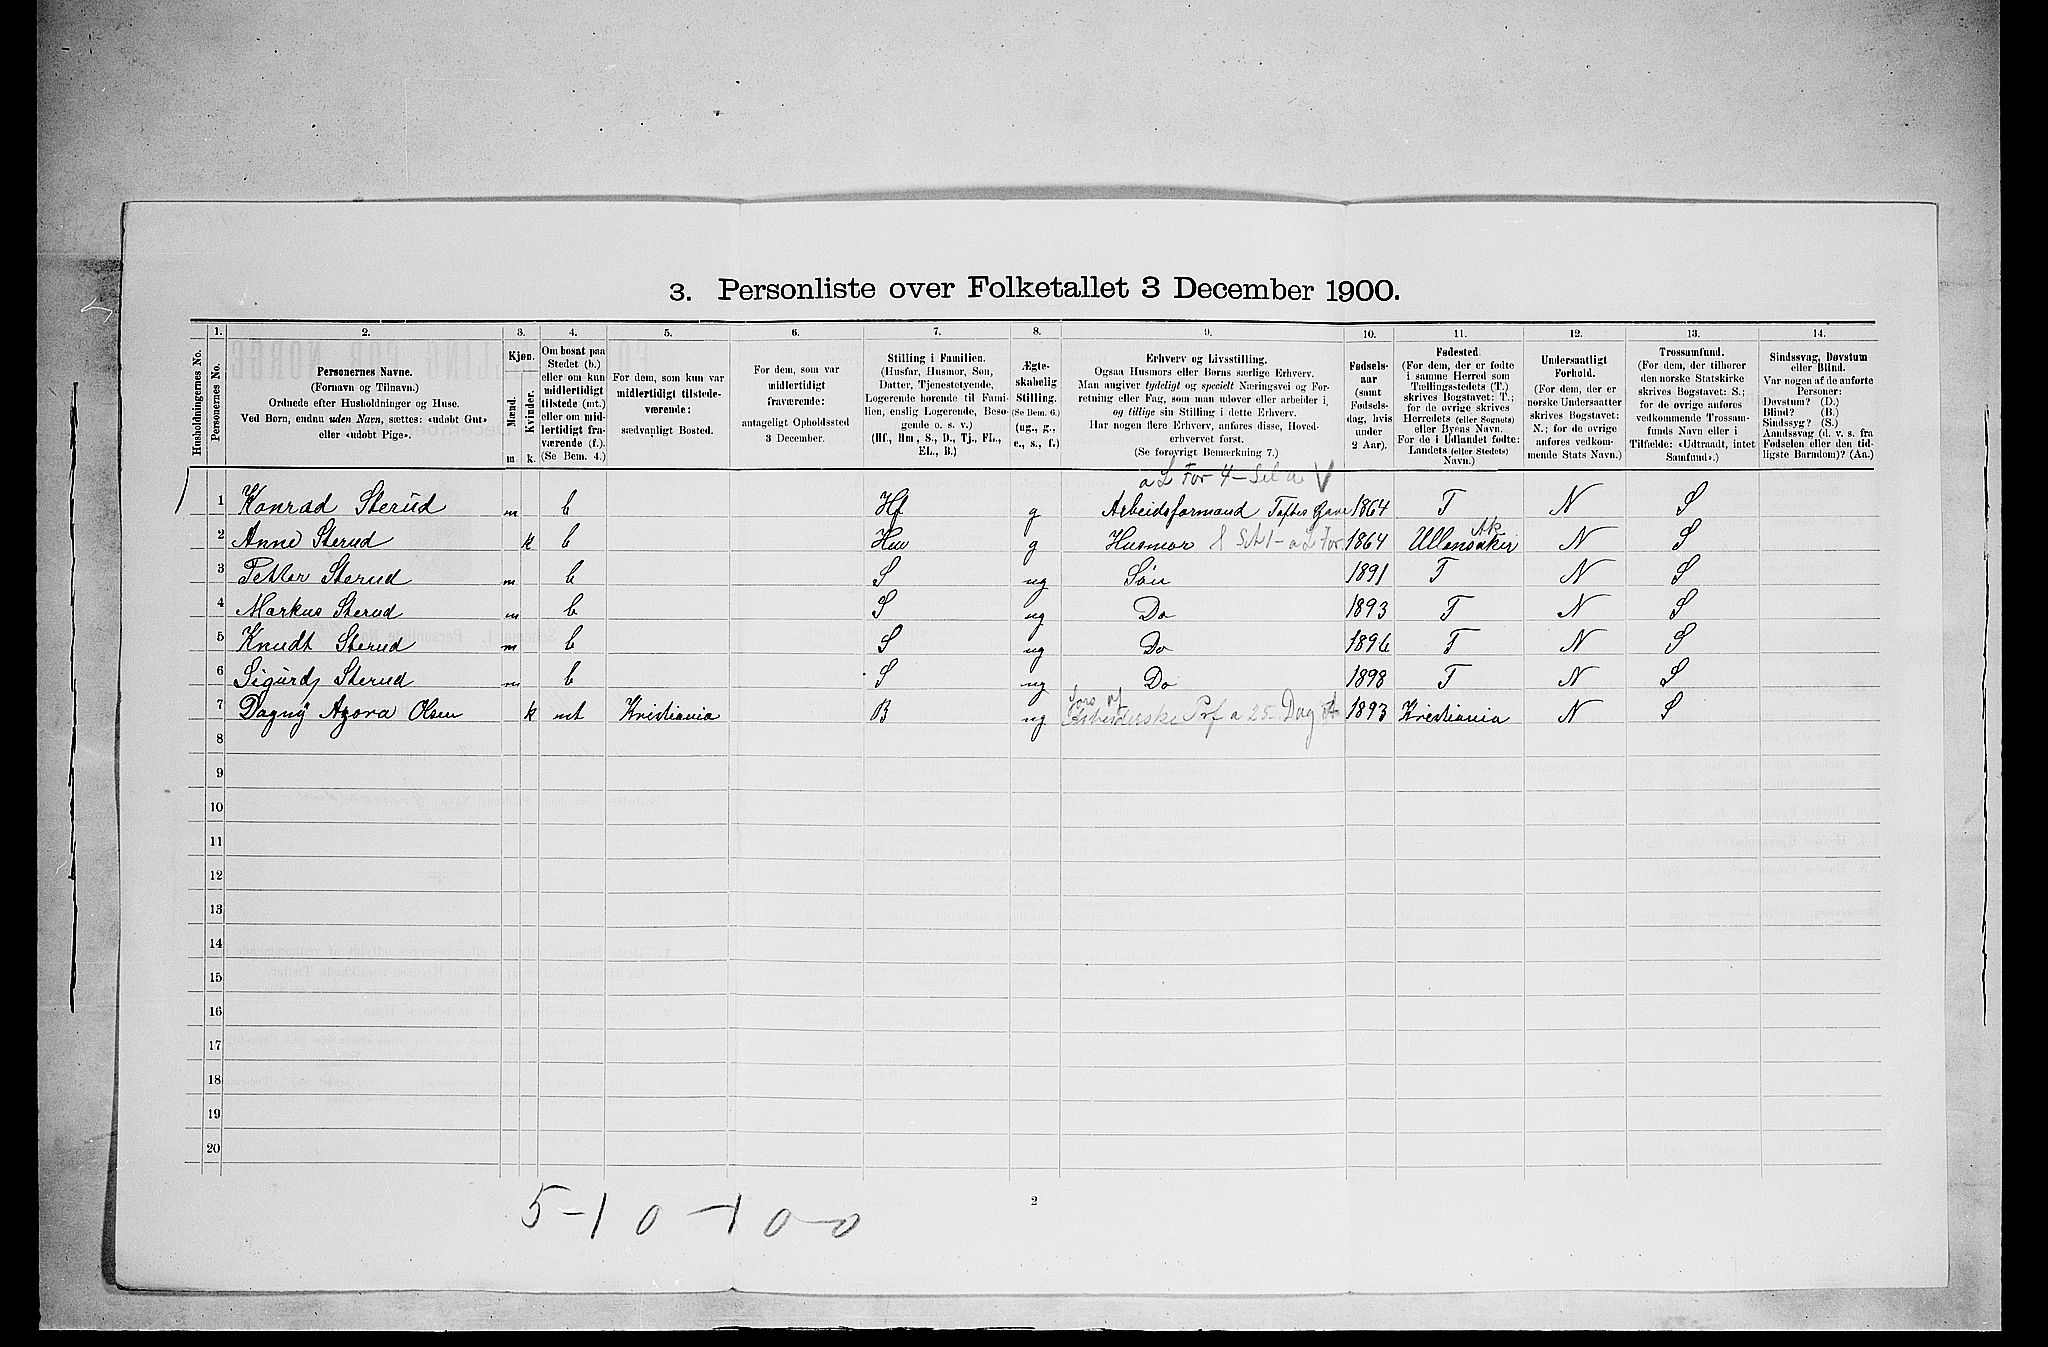 3. Personliste over Folketallet 3 December 1900.
1. 2. 3. 4. 5. 6. 7. 8. 9. 10. 11. 12. 13. 14.
Husholdningernes No.
Personernes No.
Personernes Navne.
(Fornavn og Tilnavn.)
Ordnede efter Husholdninger og Huse.
Ved Børn, endnu uden Navn, sættes: «udøbt Gut»
eller «udøbt Pige».
Kjøn.
Mænd.
Kvinder.
m k.
Om bosat paa
Stedet (b.)
eller om kun
midlertidigt
tilstede (mt.)
eller om mid-
lertidigt fra-
værende (f.)
(Se Bem. 4.)
For dem, som kun var
midlertidigt tilstede-
værende:
sædvanligt Bosted.
For dem, som var
midlertidigt
fraværende:
antageligt Opholdssted
3 December.
Stilling i Familien.
(Husfar, Husmor, Søn,
Datter, Tjenestetyende,
Logerende hørende til Fami-
lien, enslig Logerende, Besø-
gende o. s. v.)
(Hf., Hm., S., D., Tj., FL.,
EL., B.)
Ægte-
skabelig
Stilling.
(Se Bem. 6.)
(ug., g.,
e., s., f.)
Erhverv og Livsstilling.
Ogsaa Husmors eller Børns særlige Erhverv.
Man angiver tydeligt og specielt Næringsvei og For-
retning eller Fag, som man udøver eller arbeider i,
og tillige sin Stilling i dette Erhverv.
Har nogen flere Erhverv, anføres disse, Hoved-
erhvervet først.
(Se forøvrigt Bemerkning 7.)
Fødsels-
aar
(samt
Fødsels-
dag, hvis
under
2 Aar).
Fødested.
(For dem, der er fødte
i samme Herred som
Tællingsstedets (T.)
skrives Bogstavet: T.;
for de øvrige skrives
Herredets (eller Sognets)
eller Byens Navn.
For de i Udlandet fødte:
Landets (eller Stedets)
Navn.)
Undersaatligt
Forhold.
(For dem, der er
norske Undersaatter
skrives Bogstavet:
N.; for de øvrige
anføres vedkom-
mende Stats Navn.)
Trossamfund.
(For dem, der tilhører
den norske Statskirke
skrives Bogstavet: S.;
for de øvrige anføres
vedkommende Trossam-
funds Navn eller i
Tilfælde: «Udtraadt, intet
Samfund».)
Sindssvag, Døvstum
eller Blind.
Var nogen af de anførte
Personer:
Døvstum? (D.)
Blind? (B.)
Sindssyg? (S.)
Aandssvag (d. v. s. fra
Fødselen eller den tid-
ligste Barndom)? (Aa.)
1 Konrad Sterud m b Hf g Arbeidsformand Toftes Gave 1864 T N S
2 Anne Sterud k b Hm g Husmor 1864 Ullensaker Ak N S
3 Petter Sterud m b S ug Søn 1891 T N S
4 Markus Sterud m b S ug Do 1893 T N S
5 Knudt Sterud m b S ug Do 1896 T N S
6 Sigurd Sterud m b S ug Do 1898 T N S
7 Dagny Agora Olsen k mt Kristiania B ug 1893 Kristiania N S
8
9
10
11
12
13
14
15
16
17
18
19
20
5-10-100-0
2